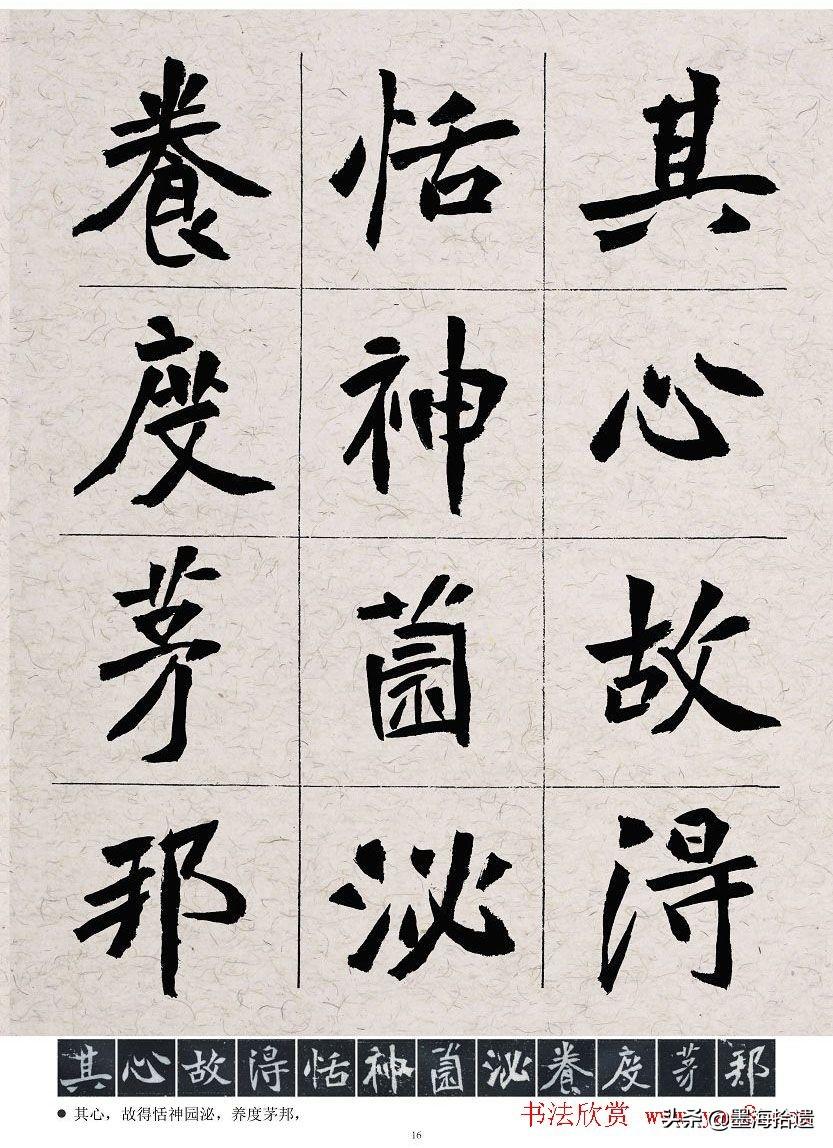 其心故得
恬神薗泌
養度茅邦
其心故得恬神薗泌養度茅邦
● 其心，故得恬神园泌，养度茅邦，
书法欣赏
头条@墨海拾遗
16